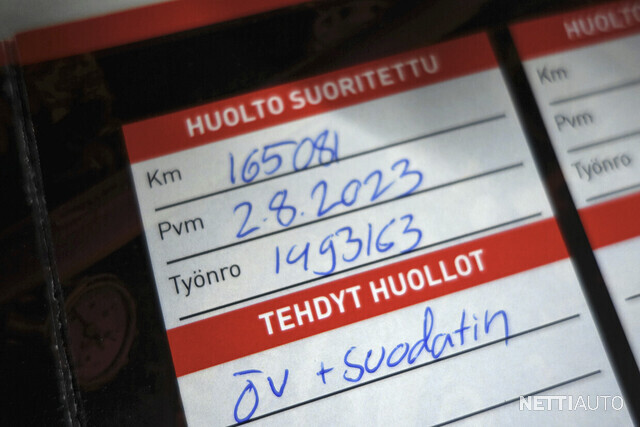 HUOLTO SUORITETTU
Km 165081
Pvm 2.8.2023
Työnro 1493163
TEHDYT HUOLLOT
ÖV + suodatin
HUOLTO
Km
Pvm
Työnro
NETTIAUTO